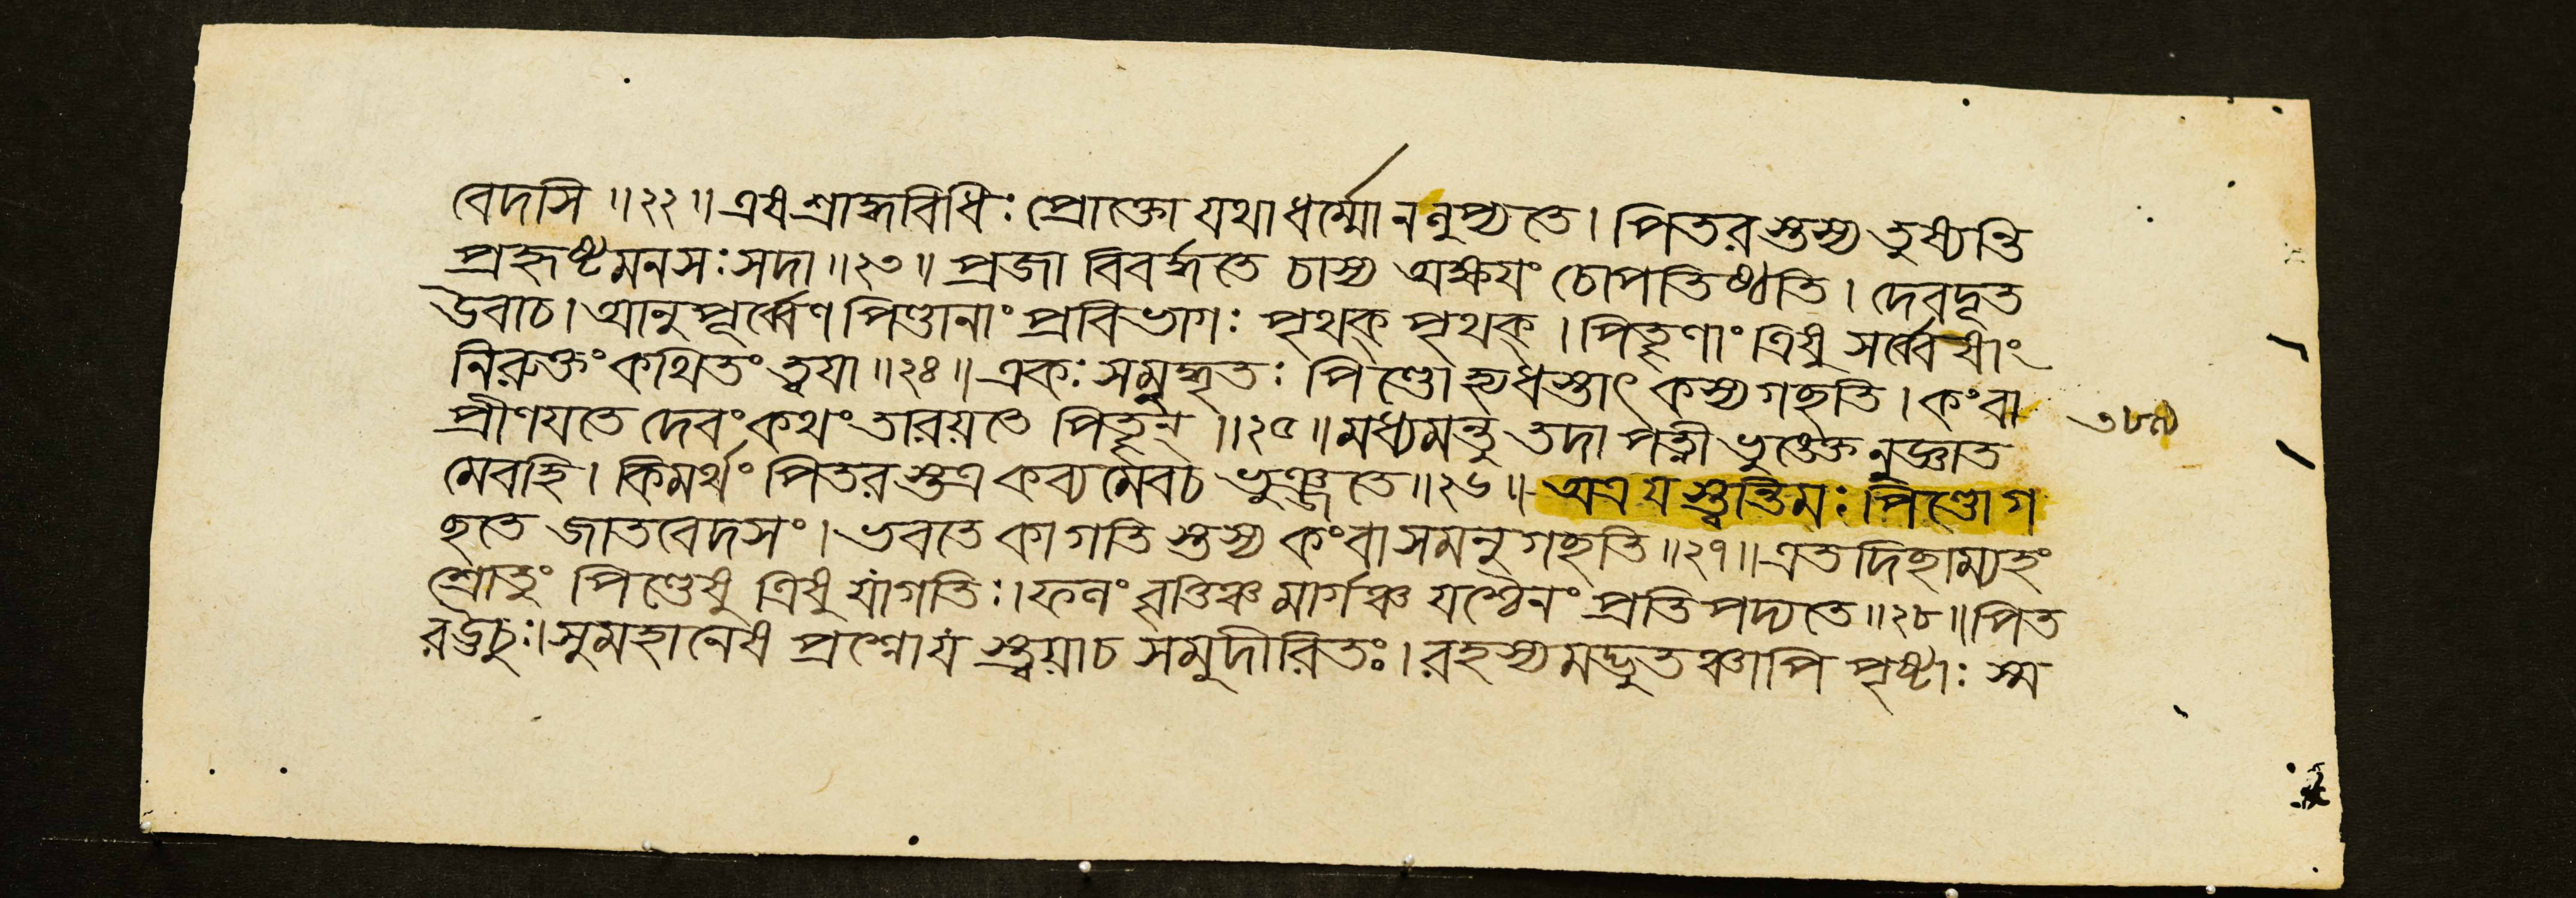 বেদসি ॥ ২২ ॥ এষ শ্রাদ্ধবিধিঃ প্রোক্তো যথা ধর্ম্মো ন নুপ্যতে । পিতরস্তুস্য তুষ্যন্তি
প্রহৃষ্টমনসঃ সদা ॥ ২৩ ॥ প্রজা বিবর্দ্ধতে চাস্য অক্ষযং চোপতিষ্ঠতি । দেবদূত
উবাচ । আনুপূর্ব্বেণ পিণ্ডানাং প্রবিভাগঃ পৃথক্ পৃথক্ । পিতৄণাং ত্রিষু সর্ব্বেষাং
নিরুক্তং কথিতং ত্বযা ॥ ২৪ ॥ একঃ সমুদ্ধৃতঃ পিণ্ডো হ্যধস্তাৎ কস্য গছতি । কংবা
প্রীণযতে দেবং কথং তারয়তে পিতৄন্ ॥ ২৫ ॥ মধ্যমন্তু তদা পত্নী ভুঙ্ক্তে নুজ্ঞাত
মেবহি । কিমর্থং পিতরস্তত্র কব্যমেবচ ভুঞ্জতে ॥ ২৬ ॥ অত্র যস্ত্বন্তিমঃ পিণ্ডো গ
ছতে জাতবেদসং । ভবতে কা গতিস্তস্য কংবা সমনুগছতি ॥ ২৭ ॥ এতদিছাম্যহং
শ্রোতুং পিণ্ডেষু ত্রিষু যা গতিঃ । ফনং বৃত্তিঞ্চ মার্গঞ্চ যশ্চৈনং প্রতিপদ্যতে ॥ ২৮ ॥ পিত
র ঊচুঃ । সুমহানেষ প্রশ্নো যং স্ত্বয়াচ সমুদীরিতঃ । রহস্যমদ্ভুতঞ্চাপি পৃষ্টাঃ স্ম